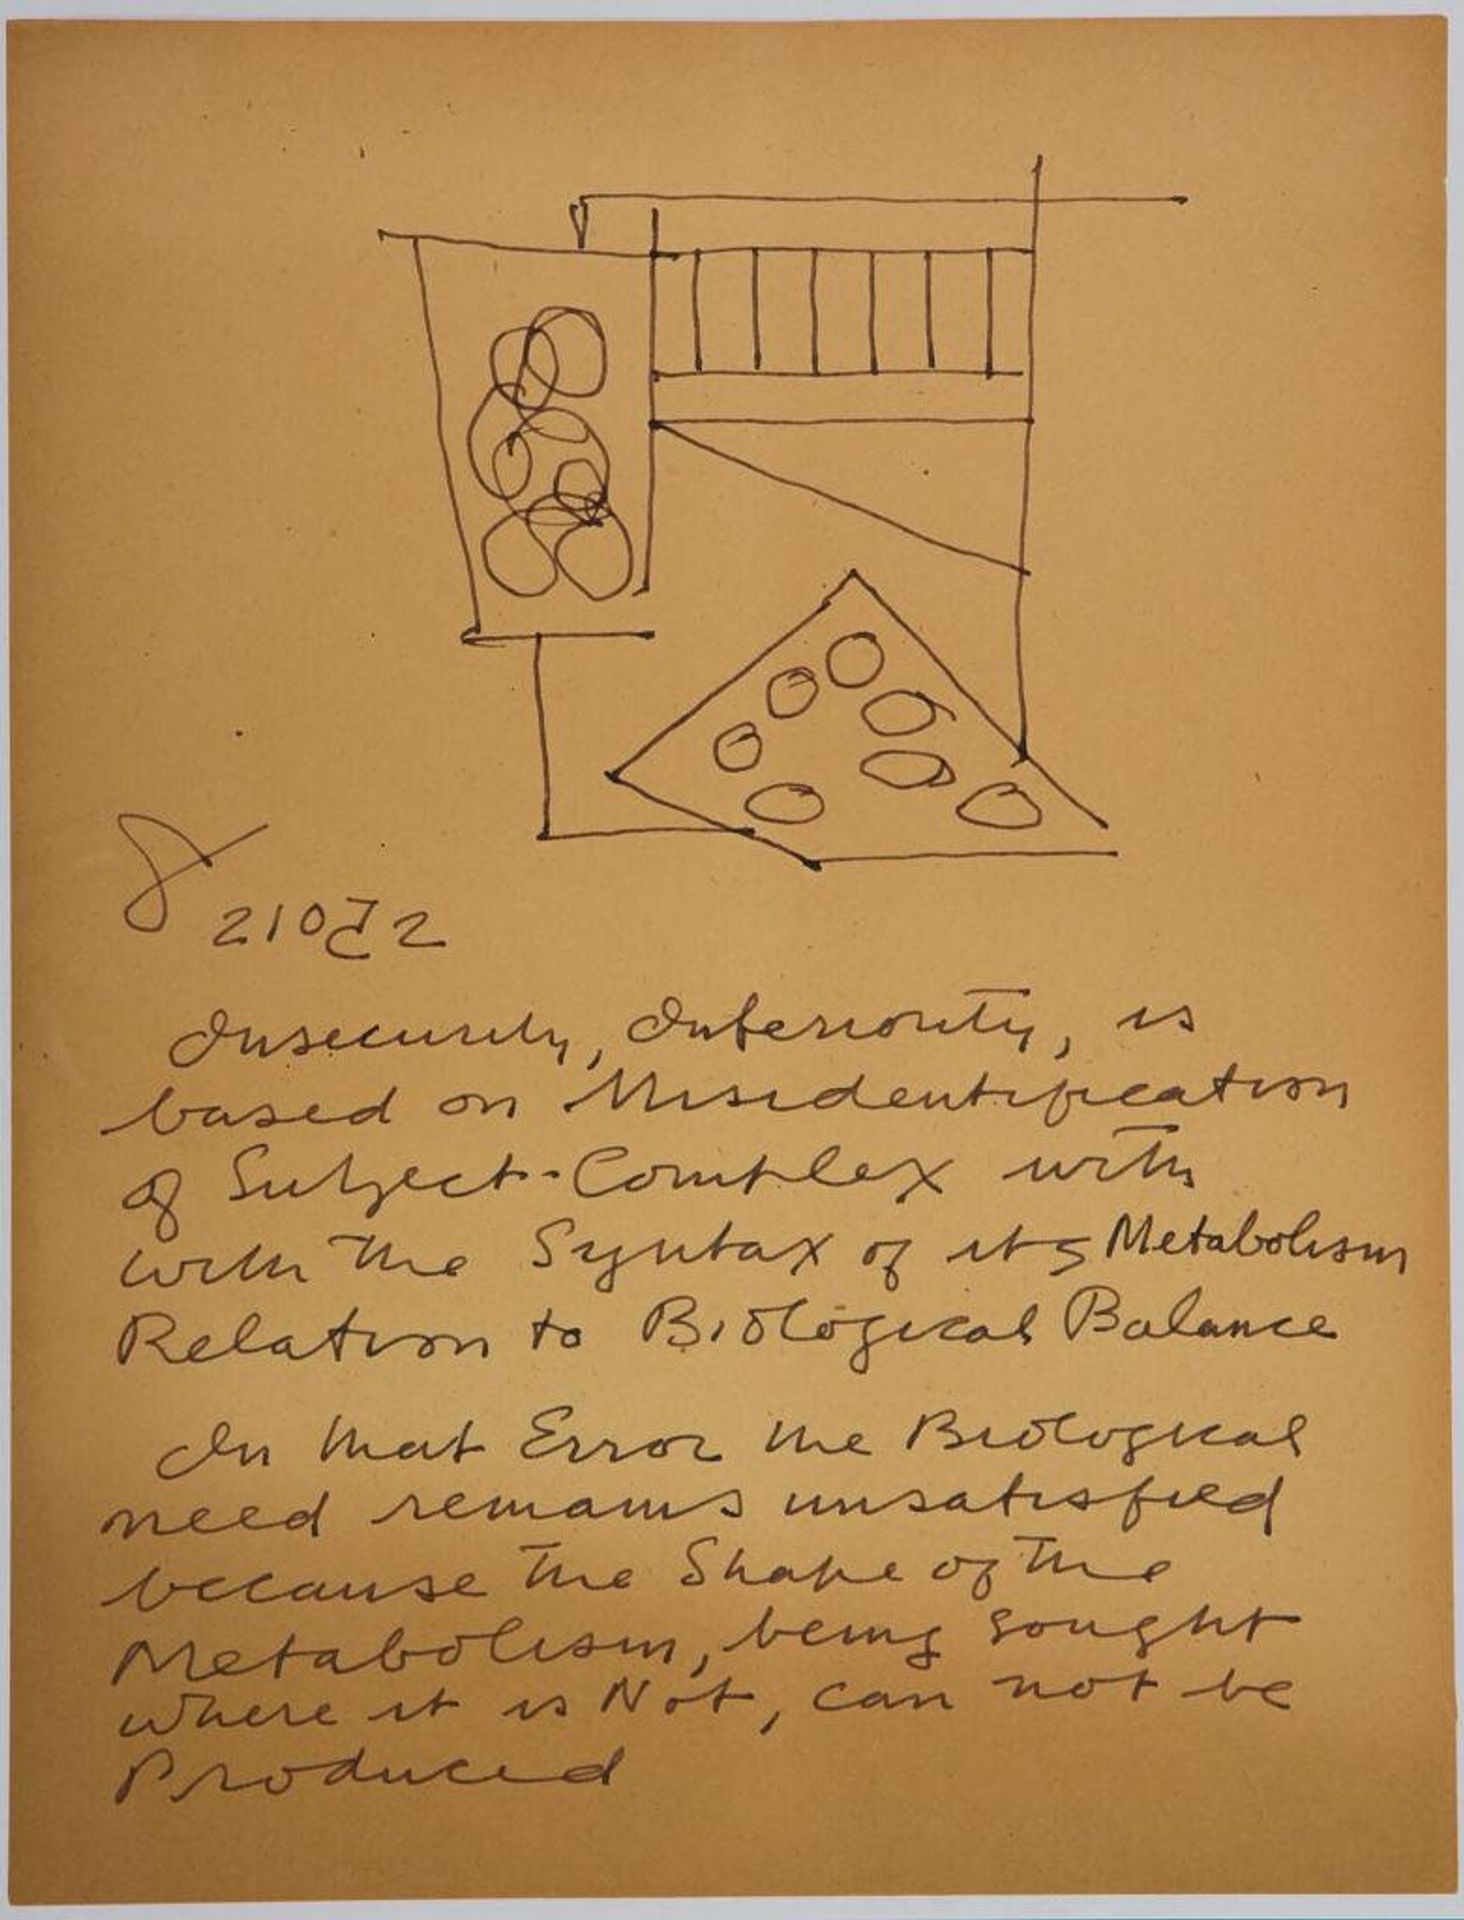 Insecurity, Inferiority, is
based on Misidentification
of Subject-Complex with
with the Syntax of its Metabolism
Relation to Biological Balance
In that Error the Biological
need remains unsatisfied
because the Shape of the
Metabolism, being sought
where it is Not, can not be
Produced